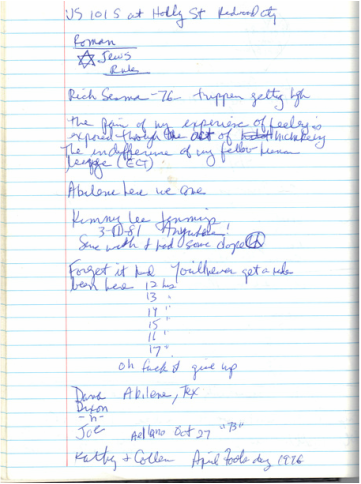 US 101 S at Holly St Redwood City
Roman
Jews
Rule
Rich Seaman - 76 trippen getting high
the pain of my experience of feeling is
exposed through the act of hitchhiking
The indifference of my fellow human
(ECT)
Abilene here we come
Kimmy Lee Jennings
3-81 Anywhere!
Some with & had some dope
Forget it kid You'll never get a ride
been here 12 hrs
13 "
14 "
15 "
16 "
17 "
oh fuck it give up
Dana Abilene, Tex
Dixon
-n-
Joe Oct 27 "73"
Kathy & Colleen April fools day 1976